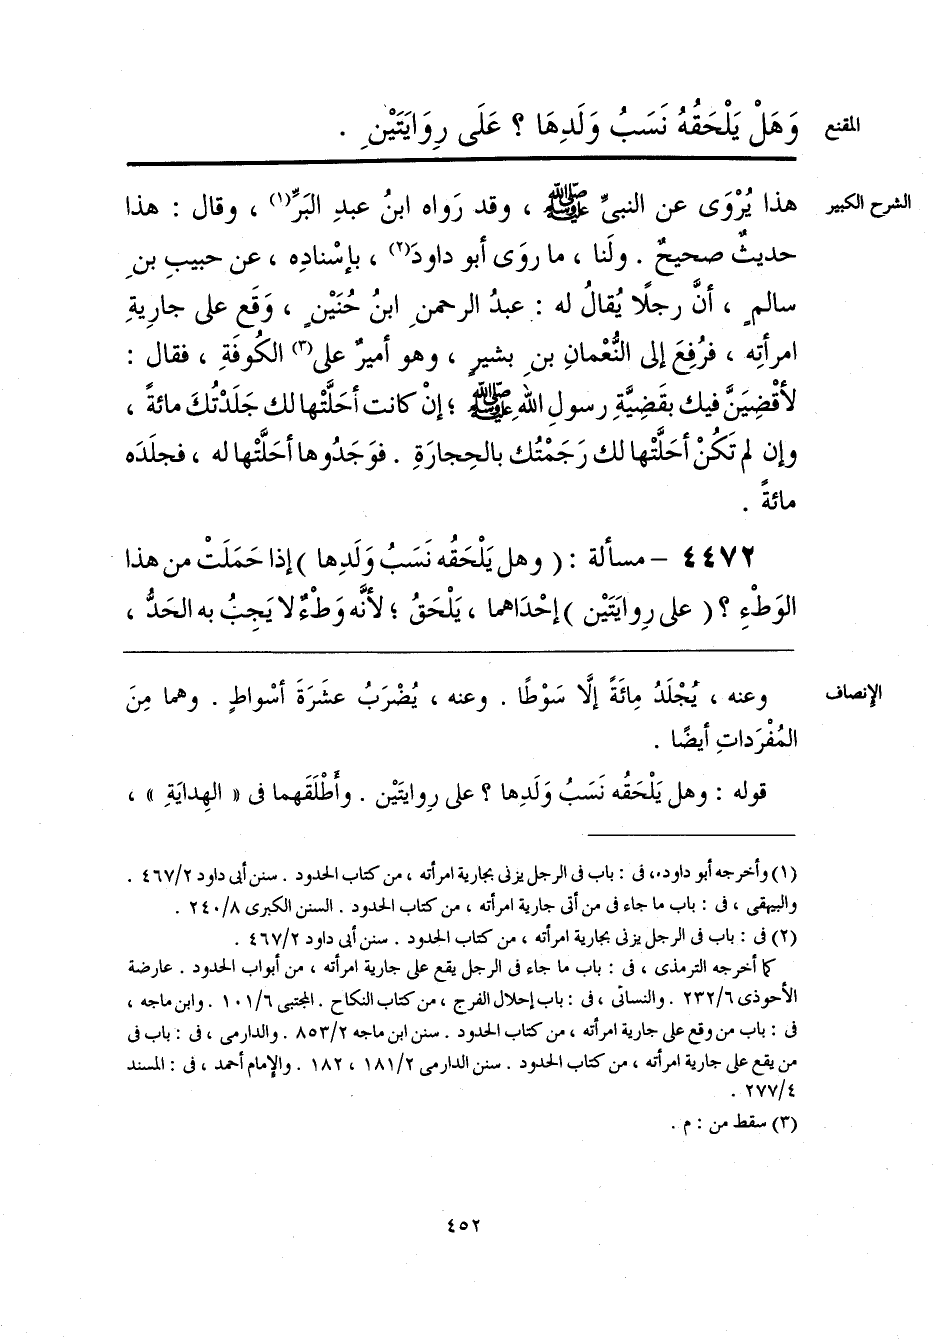 المقنع
وَهَلْ يَلْحَقُهُ نَسَبُ وَلَدِهَا ؟ عَلَى رِوَايَتَيْنِ .
الشرح الكبير
هذا يُرْوَى عن النبىِّ ﷺ ، وقد رَواه ابنُ عبدِ البَرِّ(١) ، وقال : هذا
حديثٌ صحيحٌ . ولَنا ، ما روَى أبو داودَ(٢) ، بإسْنادِه ، عن حبيبِ بنِ
سالمٍ ، أنَّ رجلًا يُقالُ له : عبدُ الرحمنِ ابنُ حُنَيْنٍ ، وَقَع على جارِيةِ
امرأتِه ، فرُفِعَ إلى النُّعْمانِ بنِ بشيرٍ ، وهو أميرٌ على(٣) الكُوفَةِ ، فقال :
لأقْضِيَنَّ فيك بقَضِيَّةِ رسولِ اللهِ ﷺ ؛ إنْ كانت أحَلَّتْها لك جَلَدْتُكَ مائةً ،
وإن لم تَكُنْ أحَلَّتْها لك رَجَمْتُك بالحِجارَةِ . فوَجَدُوها أحَلَّتْها له ، فجلَدَه
مائةً .
٤٤٧٢ – مسألة : ( وهل يَلْحَقُه نَسَبُ وَلَدِها ) إذا حَمَلَتْ من هذا
الوَطْءِ ؟ ( على رِوايَتَيْن ) إحْدَاهما ، يَلْحَقُ ؛ لأنَّه وَطْءٌ لا يَجِبُ به الحَدُّ ،
الإنصاف
وعنه ، يُجْلَدُ مِائَةً إلَّا سَوْطًا . وعنه ، يُضْرَبُ عشَرَةَ أسْواطٍ . وهما مِنَ
المُفْرَداتِ أيضًا .
قوله : وهل يَلْحَقُه نَسَبُ وَلَدِها ؟ على رِوايتَيْن . وأَطْلَقَهما فى « الهِدايَةِ » ،
(١) وأخرجه أبو داود ، فى : باب فى الرجل يزنى بجارية امرأته ، من كتاب الحدود . سنن أبى داود ٤٦٧/٢ .
والبيهقى ، فى : باب ما جاء فى من أتى جارية امرأته ، من كتاب الحدود . السنن الكبرى ٢٤٠/٨ .
(٢) فى : باب فى الرجل يزنى بجارية امرأته ، من كتاب الحدود . سنن أبى داود ٤٦٧/٢ .
كما أخرجه الترمذى ، فى : باب ما جاء فى الرجل يقع على جارية امرأته ، من أبواب الحدود . عارضة
الأحوذى ٢٣٢/٦ . والنسائى ، فى : باب إحلال الفرج ، من كتاب النكاح . المجتبى ١٠١/٦ . وابن ماجه ،
فى : باب من وقع على جارية امرأته ، من كتاب الحدود . سنن ابن ماجه ٨٥٣/٢ . والدارمى ، فى : باب فى
من يقع على جارية امرأته ، من كتاب الحدود . سنن الدارمى ١٨١/٢ ، ١٨٢ . والإمام أحمد ، فى : المسند
٢٧٧/٤ .
(٣) سقط من : م .
٤٥٢